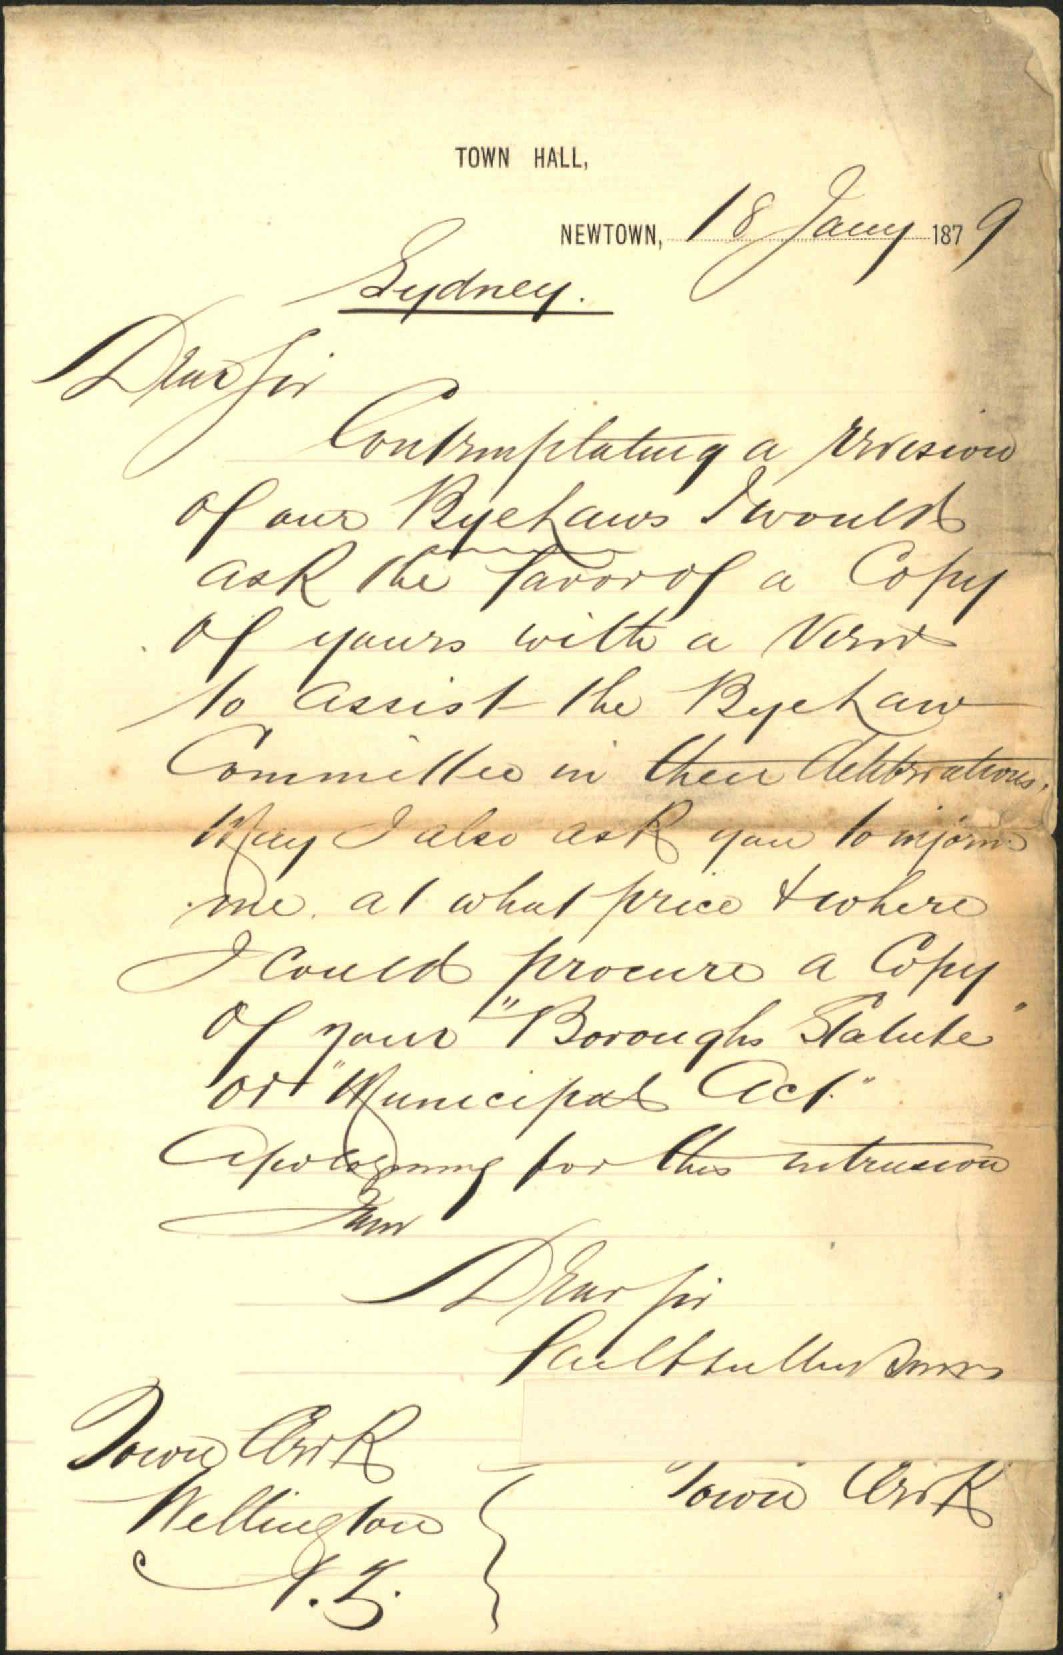 TOWN HALL,
NEWTOWN, 18 Jany 1879
Sydney.
Dear Sir
Contemplating a revision
of our Bye Laws I would
ask the favor of a Copy
of yours with a View
to assist the Bye Law
Committee in their deliberations.
May I also ask you to inform
me at what price & where
I could procure a Copy
of your "Boroughs Statute"
or "Municipal Act."
Apologizing for this intrusion
I am
Dear Sir
Faithfully Yours
Town Clerk
Town Clerk
Wellington
N.Z.